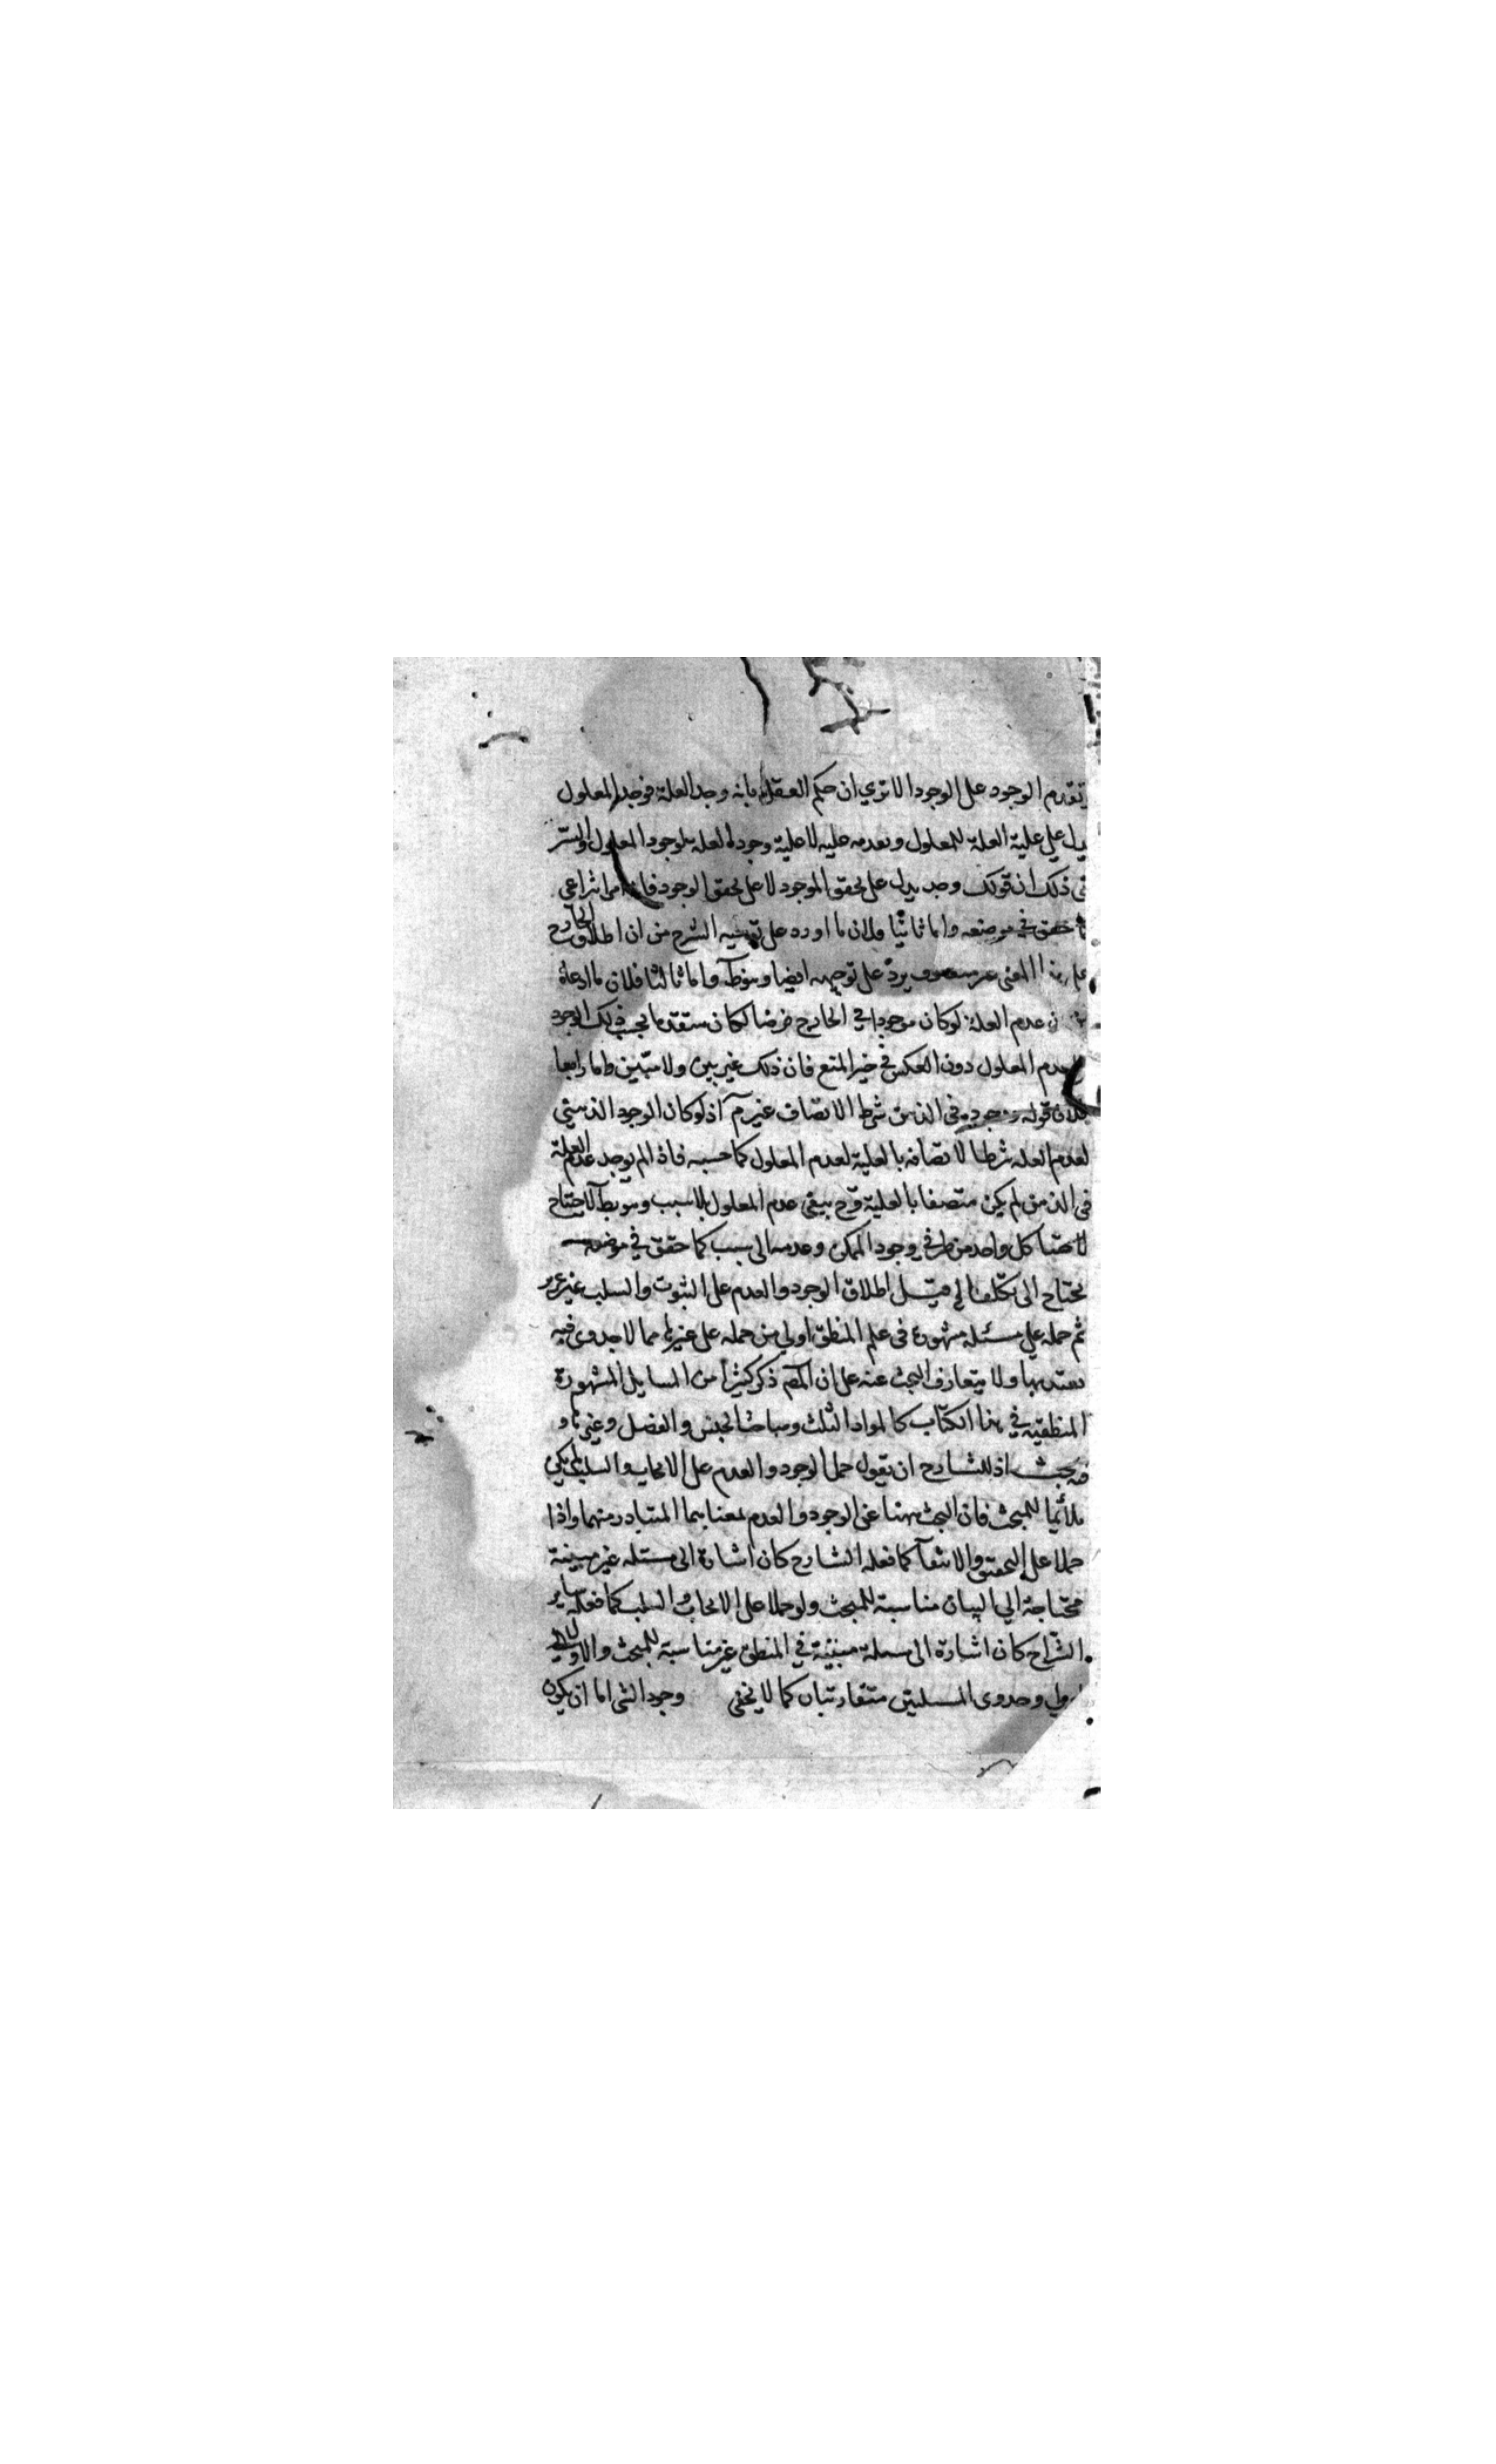 تقدم الوجود على الوجود الا ترى ان حكم العقل بانه وجد العلة فوجد المعلول
يدل على علية العلة للمعلول وبعدمه عليه لا علية وجود العلة لوجود المعلول والسر
في ذلك ان قولك وجد يدل على تحقق الموجود لا على تحقق الوجود فانه امر انتزاعي
كما حقق في موضعه واما ثانيا فلان ما اورد على توجيه الشرح من ان اطلاق الخارج
على هذا المعنى غير معروف يرد على توجيهه ايضا وهو ظ واما ثالثا فلان ما ادعاه
من ان عدم العلة لو كان موجودا في الخارج فرضا لكان متقدما بحسب ذلك الوجود
على عدم المعلول دون العكس في حيز المنع فان ذلك غير بين ولا مبين واما رابعا
فلان قوله وجوده في الذهن شرط الاتصاف غير مم اذ لو كان الوجود الذهني
لعدم العلة شرطا لاتصافه بالعلية لعدم المعلول كما حسبه فاذا لم يوجد عدم العلة
في الذهن لم يكن متصفا بالعلية وح يبقى عدم المعلول بلا سبب وهو بط لاحتياج
كل واحد من طرفي وجود الممكن وعدمه الى سبب كما حقق في موضعه
يحتاج الى تكلف الخ قيل اطلاق الوجود والعدم على الثبوت والسلب غير عزيز
ثم حمله على مسئلة مشهورة في علم المنطق اولى من حمله على غيرها مما لا جدوى فيه
يعتد بها ولا يتعارف البحث عنه على ان المصم ذكر كثيرا من المسايل المشهورة
المنطقية في هذا الكتاب كالمواد الثلث ومباحث الجنس والفصل وغيرها و
فيه بحث اذ للشارح ان يقول حمل الوجود والعدم على الايجاب والسلب لم يكن
ملائما للمبحث فان البحث ههنا عن الوجود والعدم بمعناهما المتبادر منهما واذا
حملا على التحقق والانتفآ كما فعله الشارح كان اشارة الى مسئلة غير مبينة
محتاجة الى البيان مناسبة للمبحث ولو حملا على الايجاب والسلب كما فعله ساير
الشراح كان اشارة الى مسئلة مبينة في المنطق غير مناسبة للمبحث والاولى
اولى وجدوى المسلتين متقاربتان كما لا يخفى وجود الشى اما ان يكون